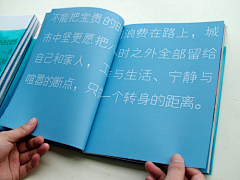 不能把宝贵的 浪费在路上，城
市中坚更愿把八 时之外全部留给
自己和家人，工 与生活、宁静与
喧嚣的断点，只 一个转身的距离。